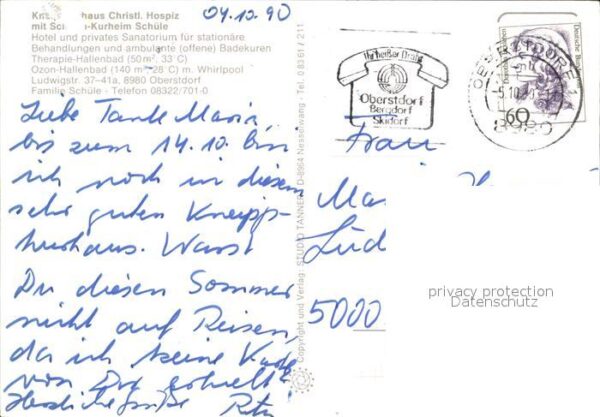 Kneippkurhaus Christl. Hospiz
mit Schroth-Kurheim Schüle
Hotel und privates Sanatorium für stationäre
Behandlungen und ambulante (offene) Badekuren
Therapie-Hallenbad (50 m², 33°C)
Ozon-Hallenbad (140 m², 28°C) m. Whirlpool
Ludwigstr. 37-41a, 8980 Oberstdorf
Familie Schüle - Telefon 08322/701-0
04.10.90
Liebe Tante Maria,
bis zum 14.10. bin
ich noch in diesem
sehr guten Kneipp-
kurhaus. Warst
Du diesen Sommer
nicht auf Reisen,
da ich keine Karte
von Dir erhielt?
Herzliche Grüße
Copyright und Verlag: STUDIO TANNER, D-8964 Nesselwang · Tel. 08361/211
Ihr heißer Draht
Oberstdorf
Bergdorf
Skidorf
OBERSTDORF 1
-5.10.90
8980
Deutsche Bundespost
60
Frau
Ma
Lud
5000
privacy protection
Datenschutz